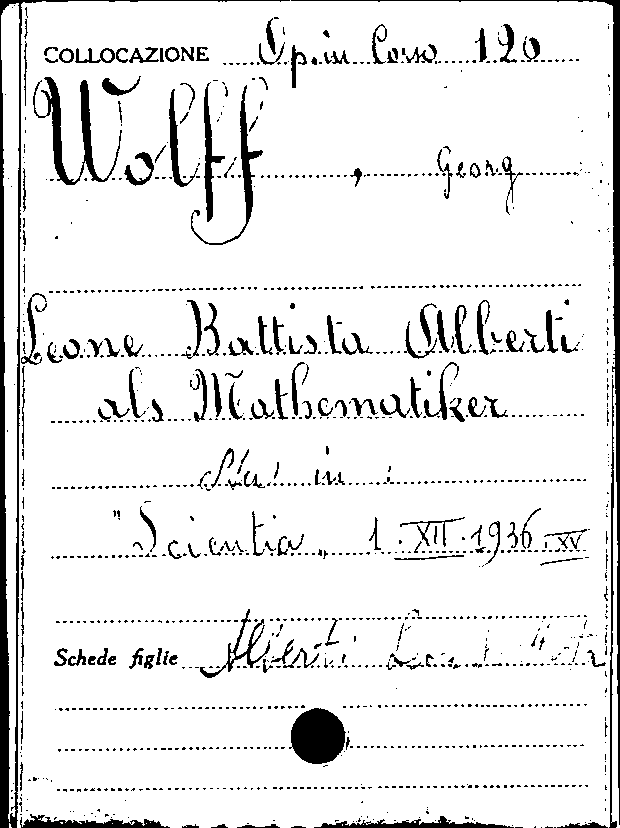 COLLOCAZIONE Op. in Corso 120
Wolff, Georg
Leone Battista Alberti
als Mathematiker
Sta in :
"Scientia„ 1. XII. 1936. XV
Schede figlie Alberti